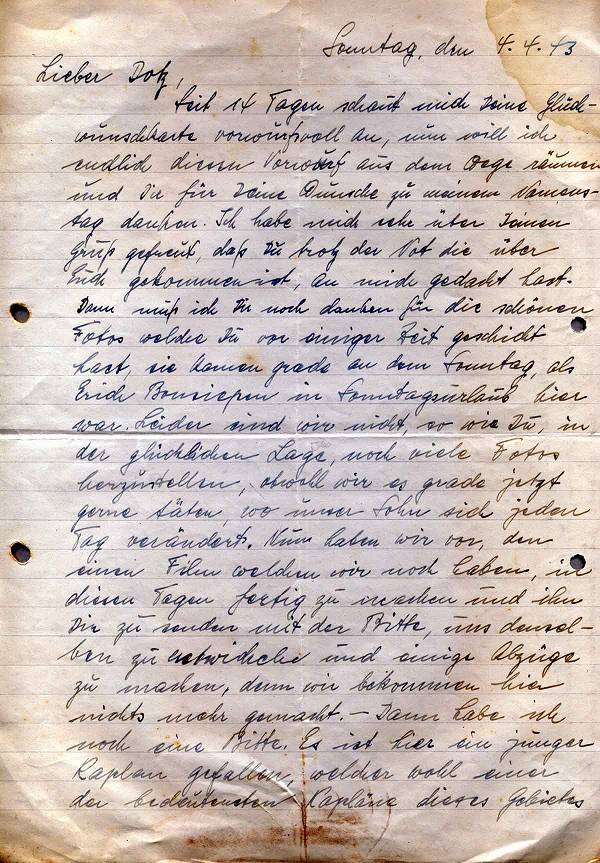 Sonntag, den 4.4.43
Lieber Dotz,
Seit 14 Tagen schaut mich Deine Glück-
wunschkarte vorwurfsvoll an, nun will ich
endlich diesen Vorwurf aus dem Wege räumen
und Dir für Deine Wünsche zu meinem Namens-
tag danken. Ich habe mich sehr über Deinen
Gruß gefreut, daß Du trotz der Not die über
Euch gekommen ist, an mich gedacht hast.
Dann muß ich Dir noch danken für die schönen
Fotos welche Du vor einiger Zeit geschickt
hast, sie kamen grade an dem Sonntag, als
Erich Bonsiepen in Sonntagsurlaub hier
war. Leider sind wir nicht, so wie Du, in
der glücklichen Lage, noch viele Fotos
herzustellen, obwohl wir es grade jetzt
gerne täten, wo unser Sohn sich jeden
Tag verändert. Nun haben wir vor, den
einen Film welchen wir noch haben, in
diesen Tagen fertig zu machen und ihn
Dir zu senden mit der Bitte, uns densel-
ben zu entwickeln und einige Abzüge
zu machen, denn wir bekommen hier
nichts mehr gemacht. – Dann habe ich
noch eine Bitte. Es ist hier ein junger
Kaplan gefallen, welcher wohl einer
der bedeutensten Kapläne dieses Gebietes